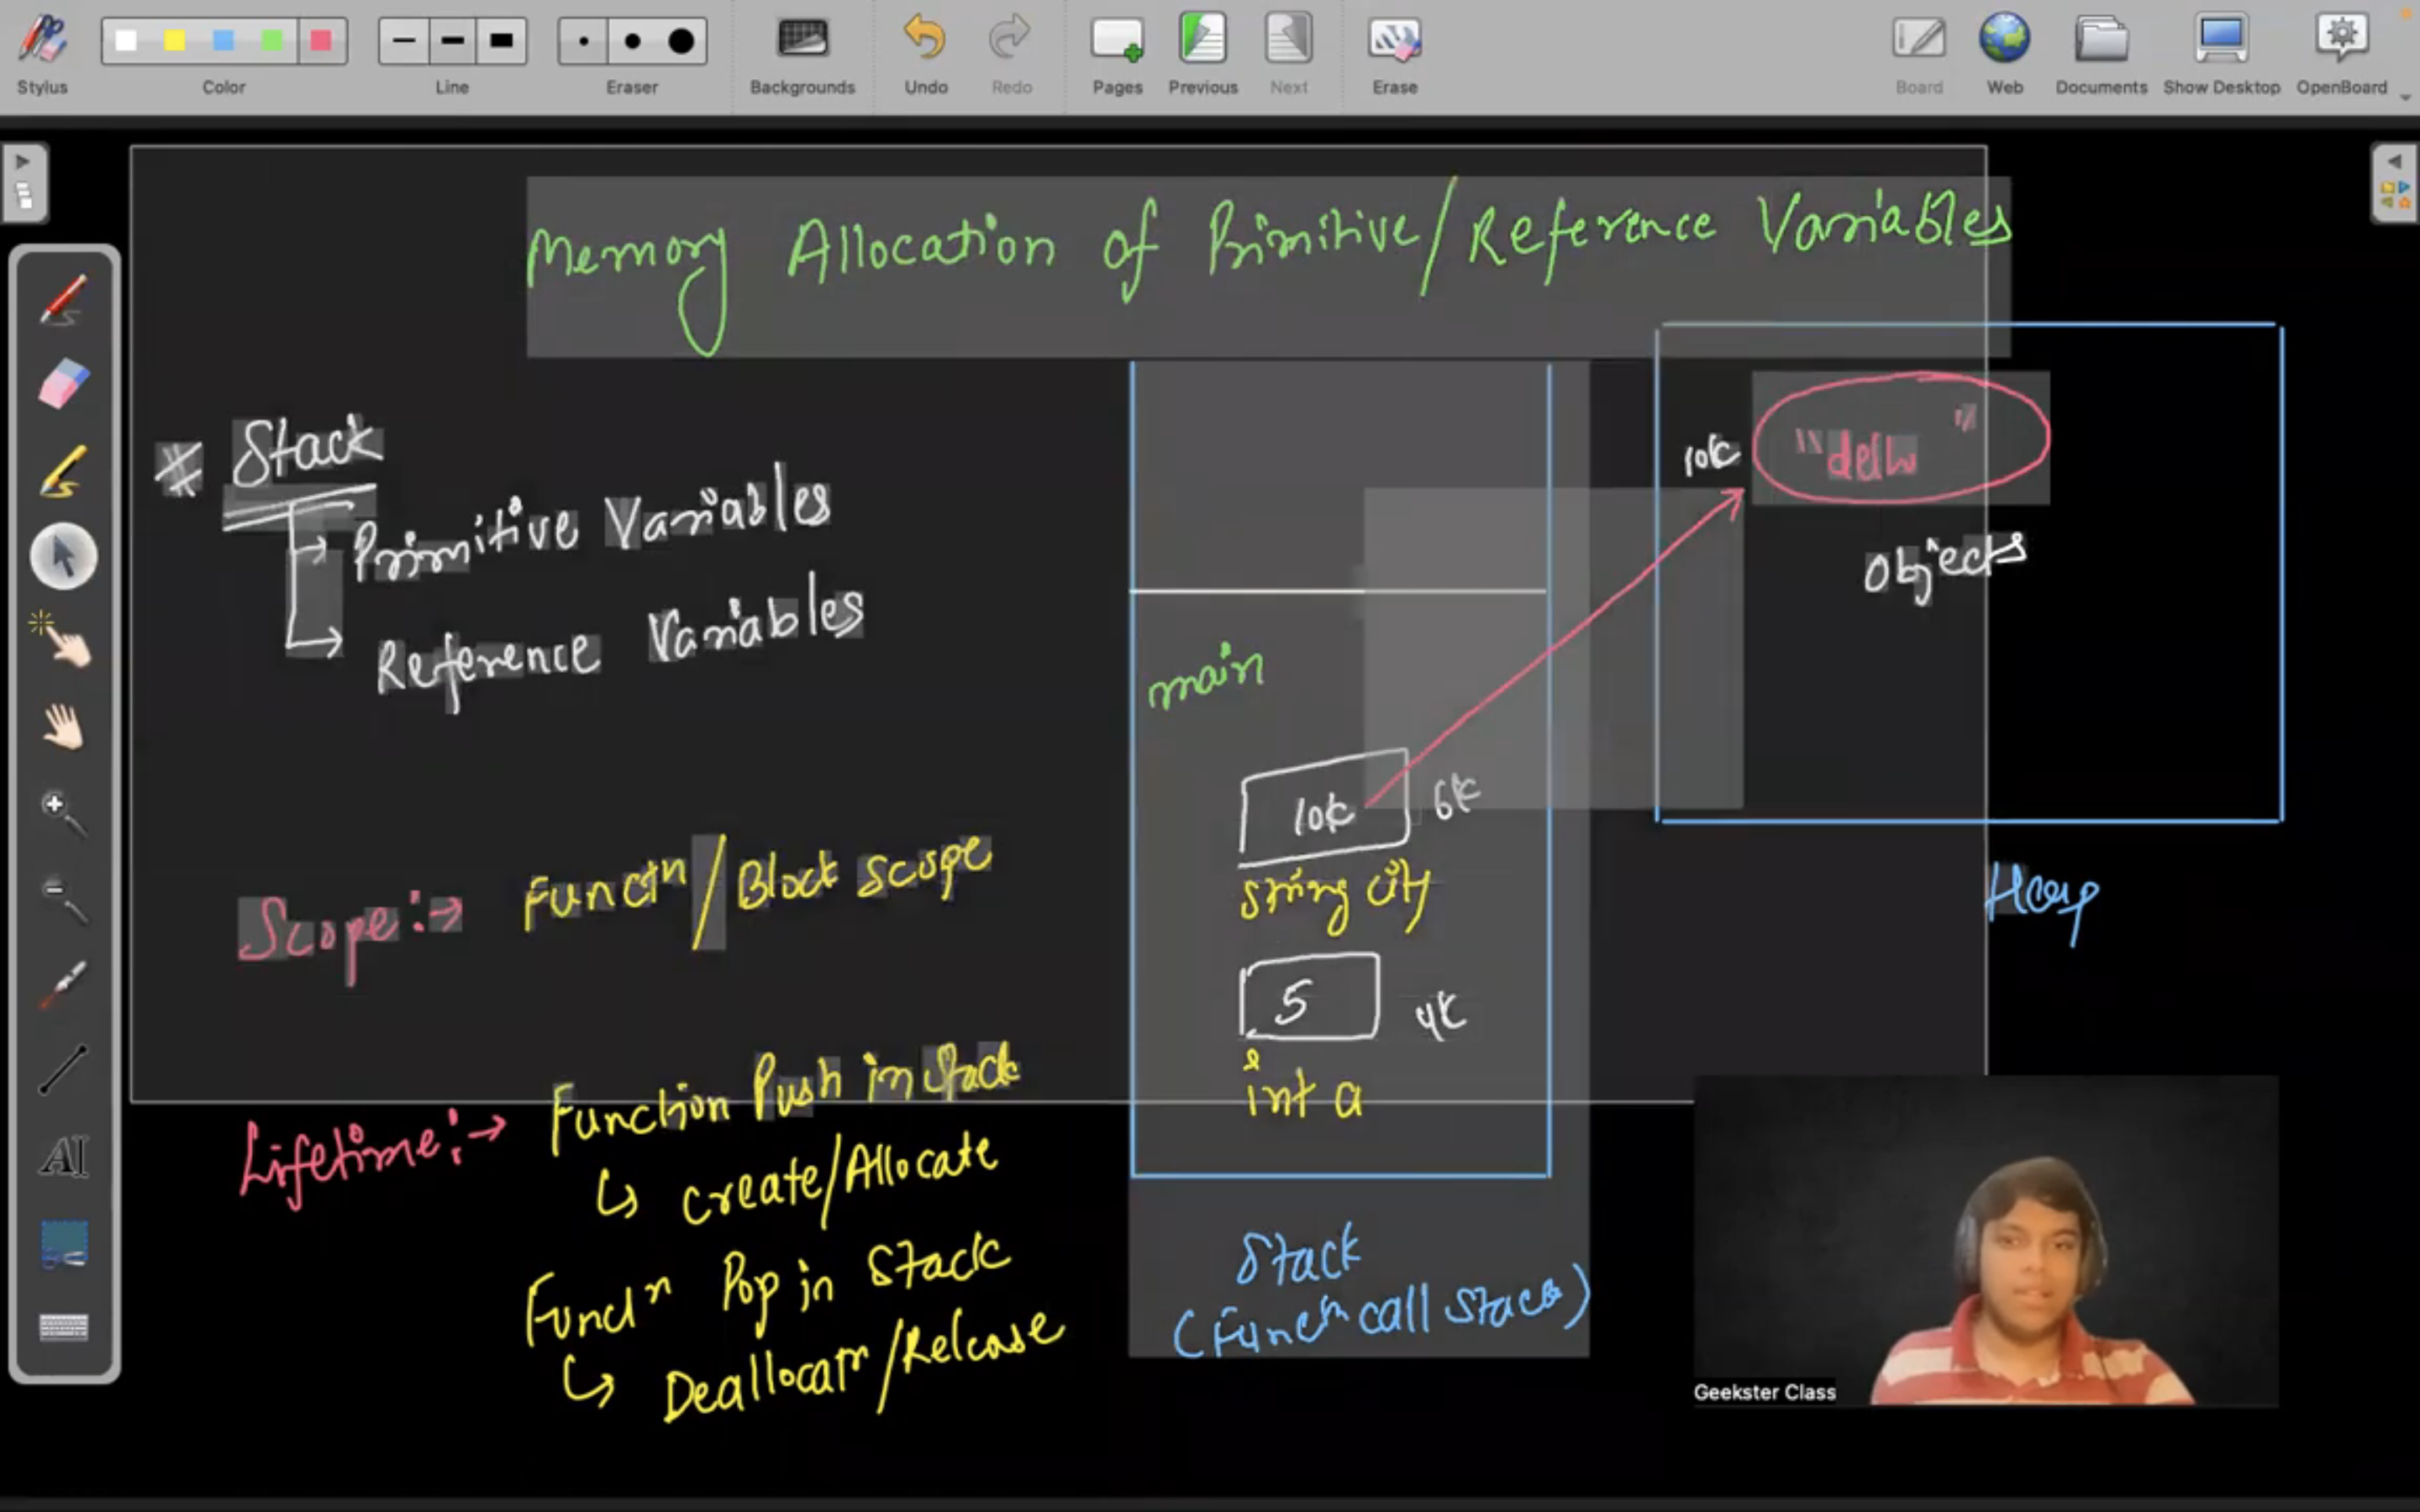 Stylus
Color
Line
Eraser
Backgrounds
Undo
Redo
Pages
Previous
Next
Erase
Board
Web
Documents
Show Desktop
OpenBoard
Memory Allocation of Primitive/Reference Variables
* Stack
→ Primitive Variables
→ Reference Variables
Scope:→ Functn/Block scope
Lifetime:→ Function Push in Stack
↳ create/Allocate
Functn Pop in Stack
↳ Deallocatn/Release
main
10k 6k
String city
5 4k
int a
Stack
(Functn call stack)
10k "delhi"
Objects
Heap
AI
Geekster Class